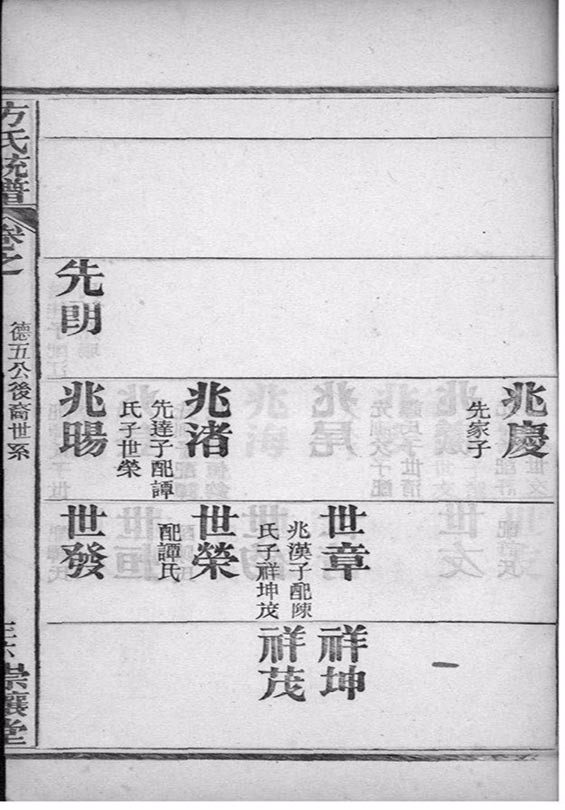 先朗
兆慶
先家子
兆渚
先達子配譚
氏子世榮
兆暘
世章
兆漢子配陳
氏子祥坤茂
世榮
配譚氏
世發
祥坤
祥茂
方氏統譜
卷之
德五公後裔世系
崇讓堂